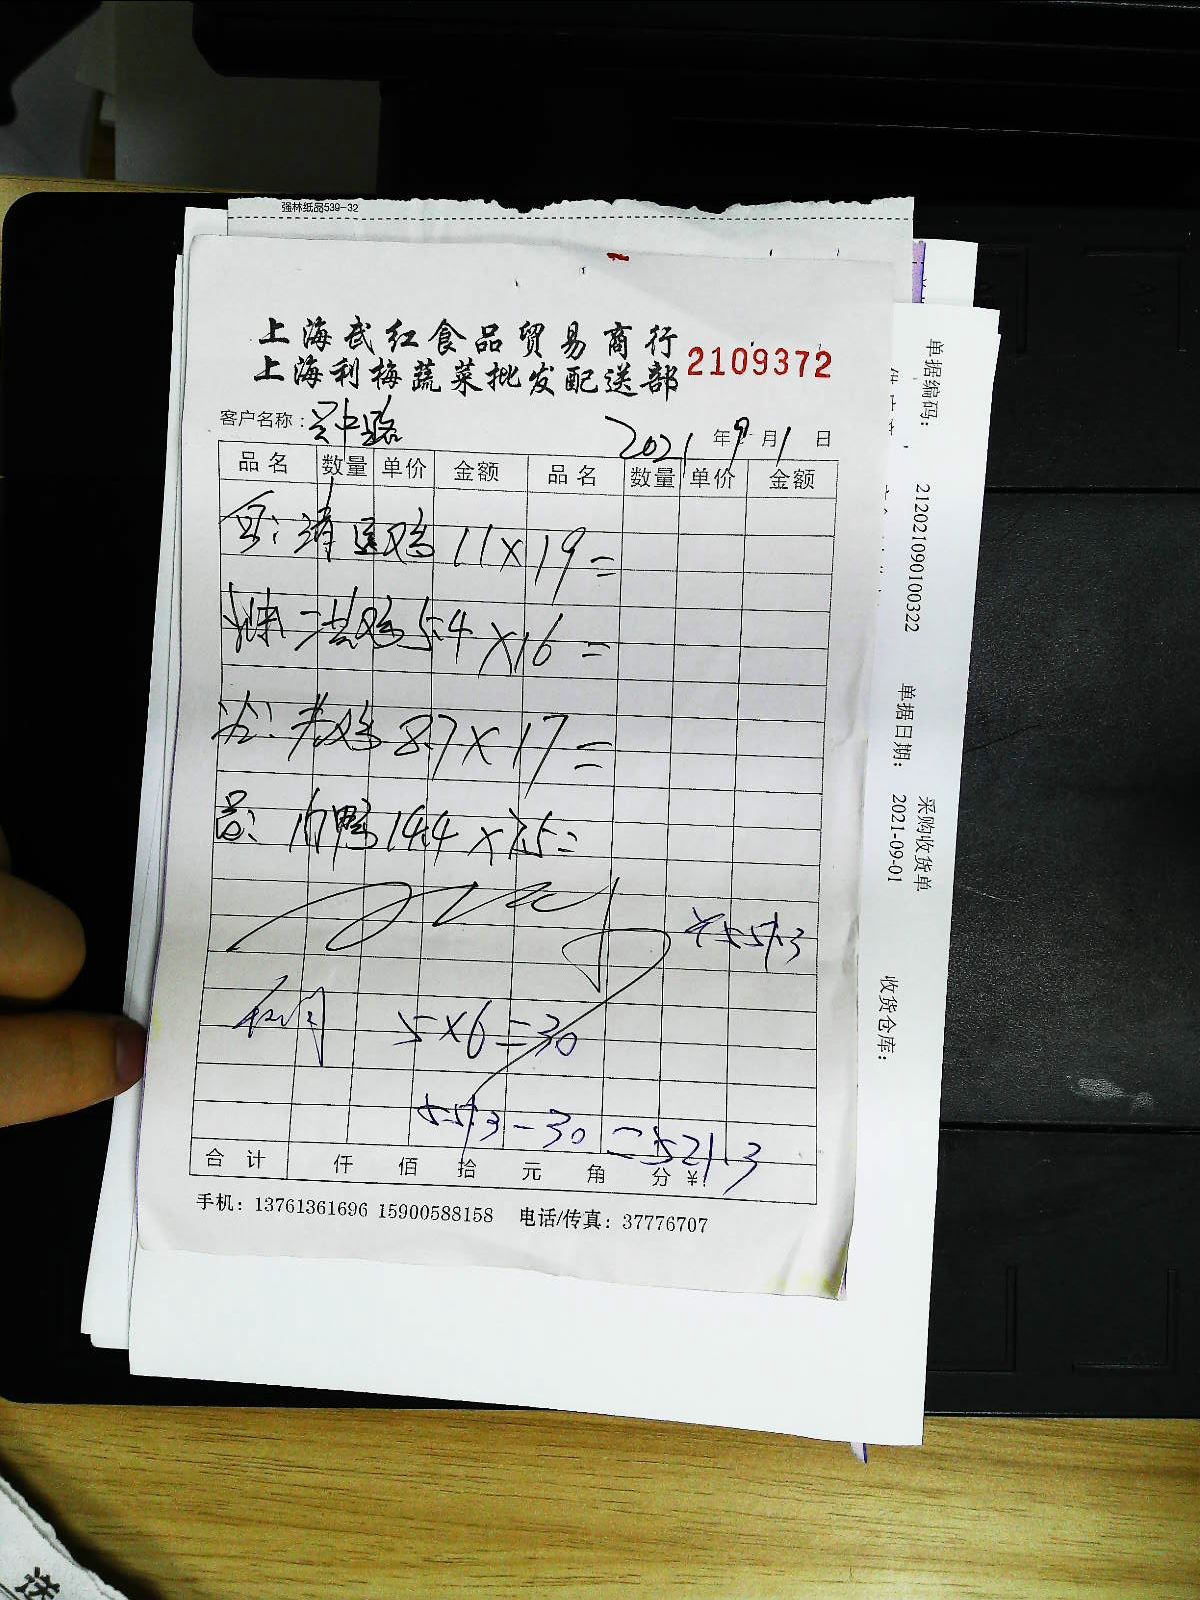 强林纸品539-32
上海武红食品贸易商行
上海利梅蔬菜批发配送部
2109372
客户名称：吴中路 2021年9月1日
品名 数量 单价 金额 品名 数量 单价 金额
清远鸡 11×19=
三黄鸡 5.4×16=
老鸡 8.7×17=
14.4×7.5=
¥551.3
5×6=30
551.3-30=521.3
合计 仟 佰 拾 元 角 分 ¥:
手机：13761361696 15900588158 电话/传真：37776707
采购收货单
单据编码： 21202109010​0322 单据日期： 2021-09-01 收货仓库：
送